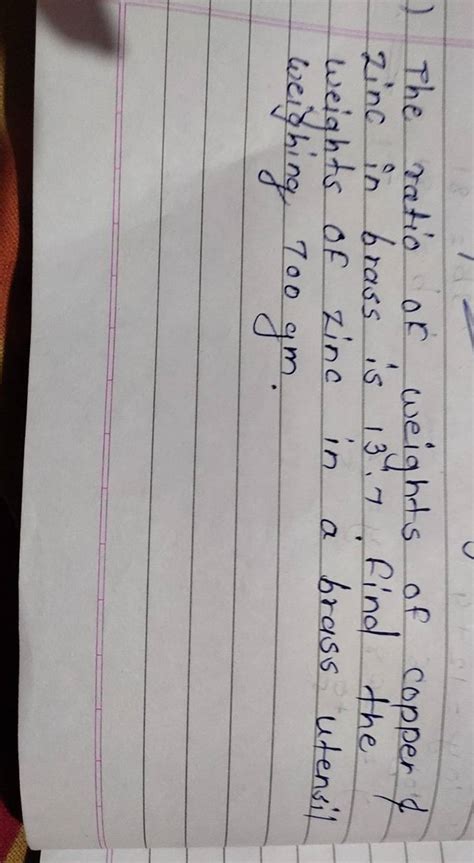 ) The ratio of weights of copper &
zinc in brass is 13:7. find the
weights of zinc in a brass utensil
weighing 700 gm.